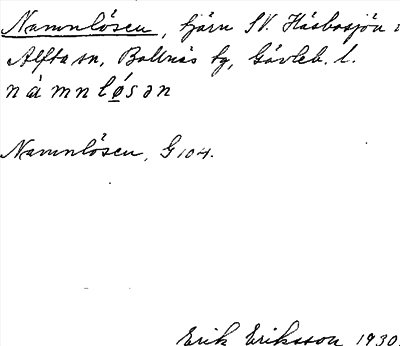 Namnlösen, tjärn SV. Håsbosjön i
Alfta sn, Bollnäs tg, Gävleb. l.
nàmnlø̲sən
Namnlösen, G 104.
Erik Eriksson 1930.